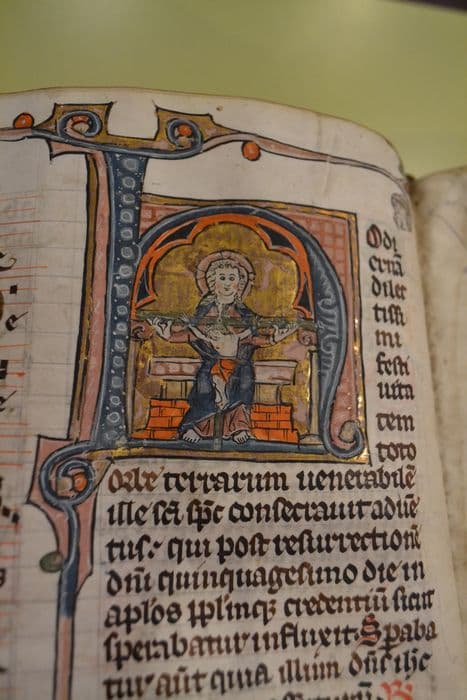 H Odi
ernā
dilec
tissi
mi
festi
uita
tem
toto
orbe terrarum uenerabilē
ille sc̄i sp̄c consecrauit aduē
tus: qui post resurrectionē
dn̄i quinquagesimo die in
ap̄los credentiū sicut
sperabatur influxit. Speraba
tur aūt quia illum dn̄c ih̄c